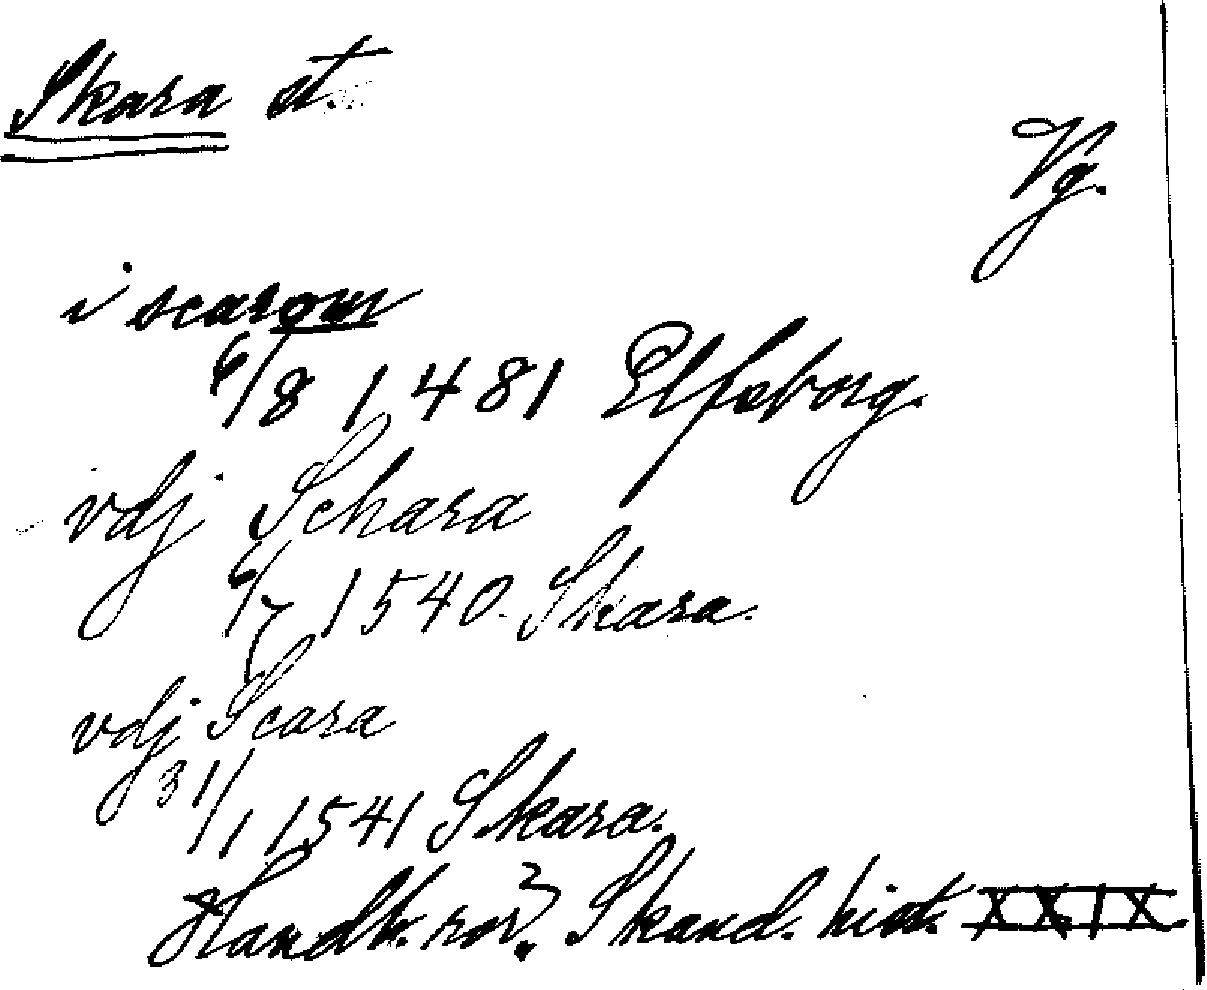 Skara st.
Vg.
i scarom
6/8 1481 Elfsborg.
vdj Schara
6/7 1540. Skara.
vdj Scara
31/1 1541 Skara.
Handl. rör. Skand. hist. XXIX.